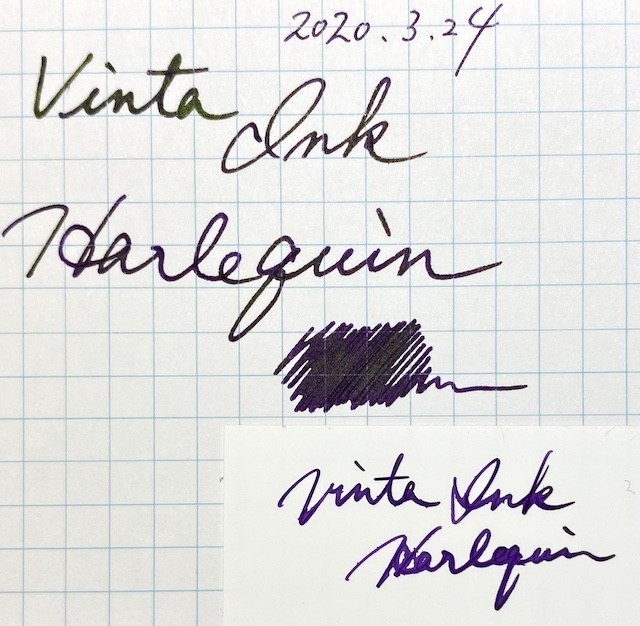 2020.3.24
Vinta
Ink
Harlequin
Vinta Ink
Harlequin